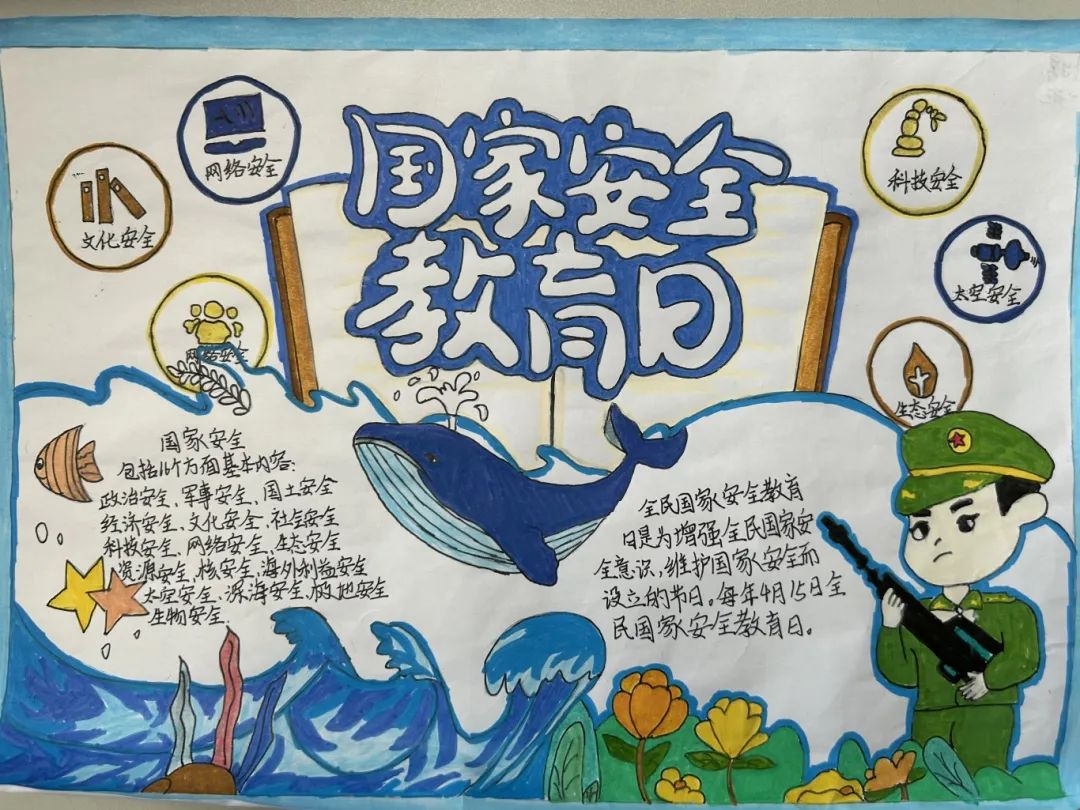 国家安全
教育日
网络安全
文化安全
网络安全
科技安全
太空安全
生态安全
国家安全
包括16个方面基本内容:
政治安全、军事安全、国土安全
经济安全、文化安全、社会安全
科技安全、网络安全、生态安全
资源安全、核安全、海外利益安全
太空安全、深海安全、极地安全
生物安全.
全民国家安全教育
日是为增强全民国家安
全意识,维护国家安全而
设立的节日。每年4月15日全
民国家安全教育日。